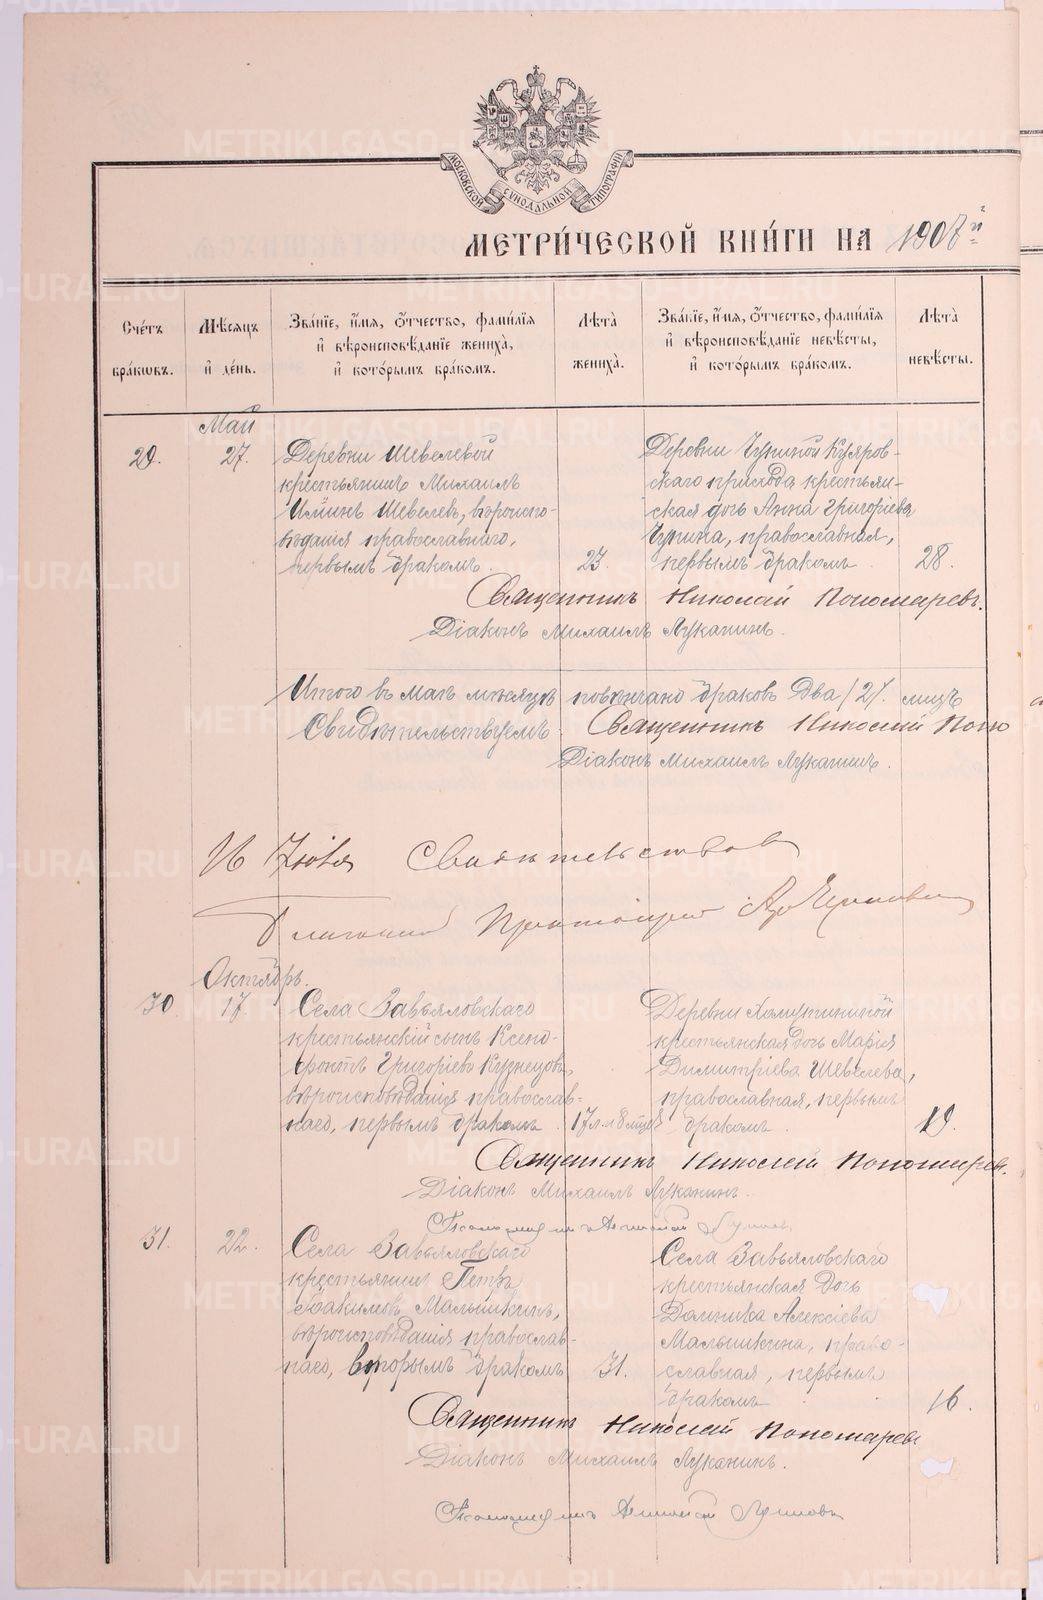 МОСКОВСКОЙ СѴНОДАЛЬНОЙ ТИПОГРАФІИ
МЕТРИ́ЧЕСКОЙ КНИ́ГИ НА 1907 й
Сче́тъ бра́кѡвъ.
Мѣ́сяцъ и҆ де́нь.
Зва́нїе, и҆́мя, ѻ҆́тчество, фами́лїя и҆ вѣроисповѣ́данїе жениха̀, и҆ кото́рымъ бра́комъ.
Лѣ̑та жениха̀.
Зва́нїе, и҆́мя, ѻ҆́тчество, фами́лїя и҆ вѣроисповѣ́данїе невѣ́сты, и҆ кото́рымъ бра́комъ.
Лѣ̑та невѣ́сты.
Май
29.
27.
Деревни Шевелевой
крестьянинъ Михаилъ
Шевелевъ, вѣроиспо-
вѣданія православнаго,
первымъ бракомъ.
23.
Деревни Чупиной Куяров-
скаго прихода крестьян-
ская дочь Анна Григоріева
Чупина, православная,
первымъ бракомъ
28.
Священникъ Николай Пономаревъ.
Діаконъ Михаилъ Луканинъ.
Итого въ маѣ мѣсяцѣ повѣнчано браковъ два /2/. лицъ
Свидѣтельствуемъ. Священникъ Николай Поно
Діаконъ Михаилъ Луканинъ.
16 Свидѣтельствовалъ
Протоіерей
Октябрь.
30
17.
Села Завьяловскаго
крестьянскій сынъ Ксено-
фонтъ Григоріевъ Кузнецовъ,
вѣроисповѣданія православ-
наго, первымъ бракомъ.
17 л. и 8 мѣс.
Деревни
крестьянская дочь Марія
Димитріева Шевелева,
православная, первымъ
бракомъ.
19.
Священникъ Николай Пономаревъ.
Діаконъ Михаилъ Луканинъ.
Псаломщикъ
31.
22.
Села Завьяловскаго
крестьянинъ Петръ
Малышкинъ,
вѣроисповѣданія православ-
наго, вторымъ бракомъ
31.
Села Завьяловскаго
крестьянская дочь
Домника Алексіева
Малышкина, право-
славная, первымъ
бракомъ
16.
Священникъ Николай Пономаревъ
Діаконъ Михаилъ Луканинъ.
Псаломщикъ
METRIKI.GASO-URAL.RU